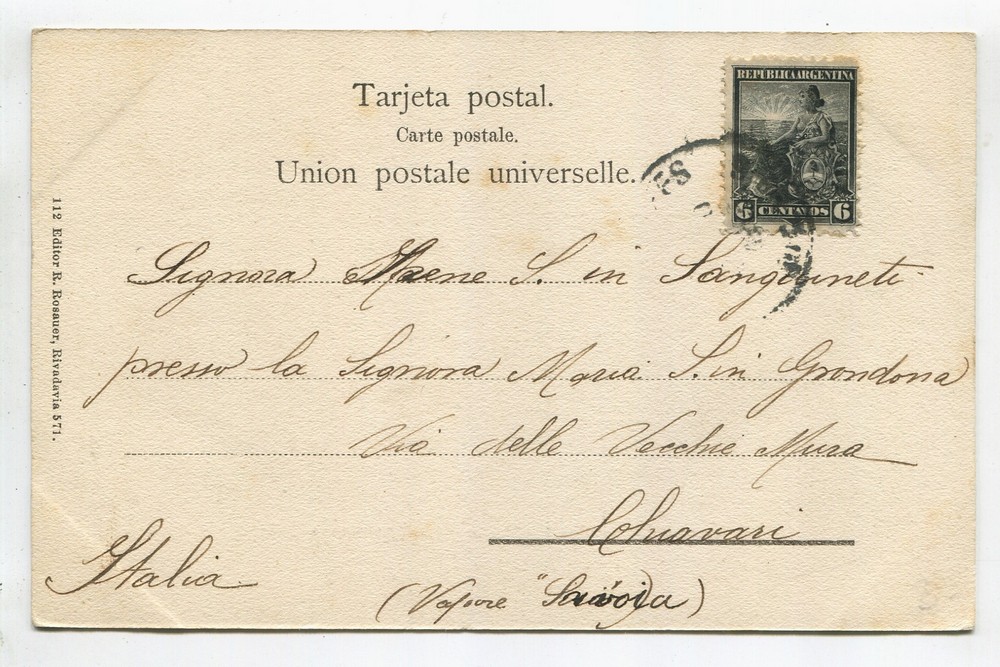 Tarjeta postal.
Carte postale.
Union postale universelle.
REPUBLICA ARGENTINA
6 CENTAVOS 6
ES
Signora Maene S. in Sanguineti
presso la Signora Maria S. in Grondona
Via delle Vecchie Mura
Chiavari
Italia
(Vapore "Savoia)
112 Editor R. Rosauer, Rivadavia 571.